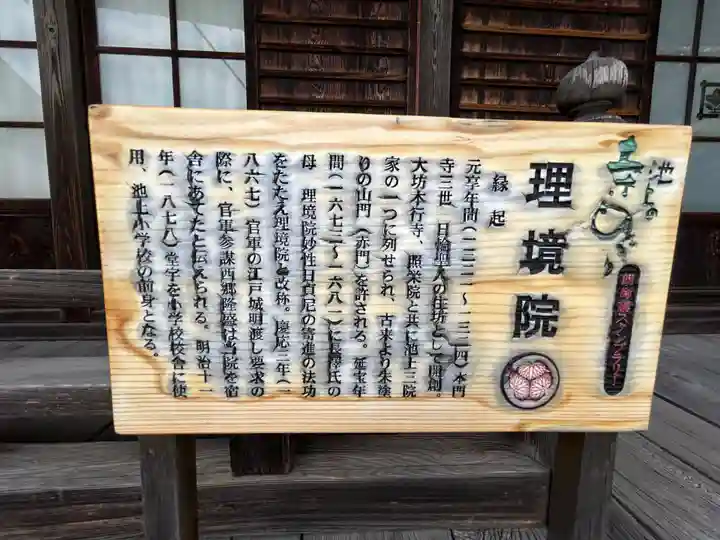 池上の
寺めぐり
理境院
縁起
元亨年間(一三二一〜一三二四)本門
寺三世 日輪聖人の住坊として開創。
大坊本行寺、照栄院と共に池上三院
家の一つに列せられ、古来より朱塗
りの山門(赤門)を許される。延宝年
間(一六七三〜一六八一)に長澤氏の
母 理境院妙性日貞尼の寄進の法功
をたたえ理境院と改称。慶応三年(一
八六七)官軍の江戸城明渡し要求の
際に、官軍参謀西郷隆盛は当院を宿
舎にあてたと伝えられる。明治十一
年(一八七八)堂宇を小学校校舎に使
用、池上小学校の前身となる。